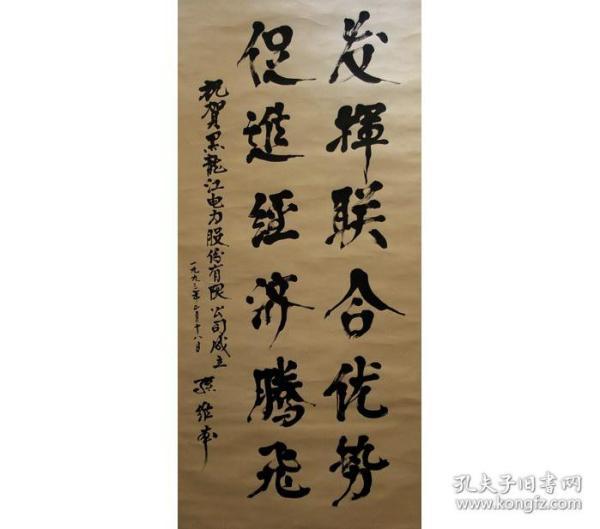 发揮联合优势
促進经济腾飛
祝贺黑龍江电力股份有限公司成立
一九九三年正月十八日
孫維本
孔夫子旧书网
www.kongfz.com